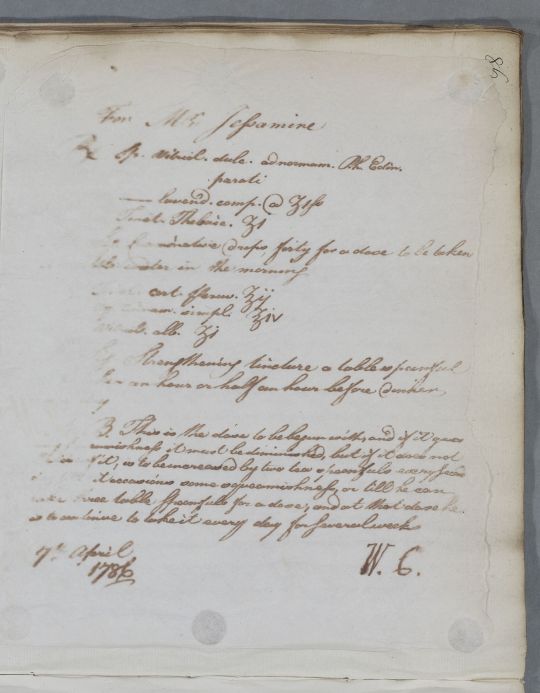 86
For Mr Jessamine
Rx Sp. vitriol. dulc. ad normam. Ph. Edin.
parati
—— lavend. comp. @ ʒiss
Tinct. Thebaic. ʒi
Carminative drops, forty for a dose to be taken
water in the morning
cort. peruv. ʒij
cinnam. simpl. ʒiv
Vitriol. alb. ʒj
Strengthening tincture a table spoonful
an hour or half an hour before dinner
B. This is the dose to be begun with, and if it gives
squeamishness it must be diminished, but if it does not
it, is to be increased by two tea spoonfuls every
it occasions some squeamishness, or till he can
take three table spoonfuls for a dose, and at that dose he
is to continue to take it every day for several weeks
7th April
W. C.